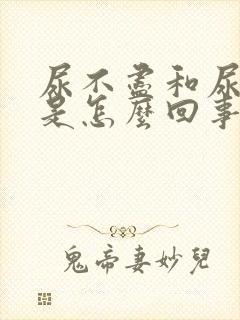 尿不盡和尿
是怎麼回事
鬼帝妻妙兒